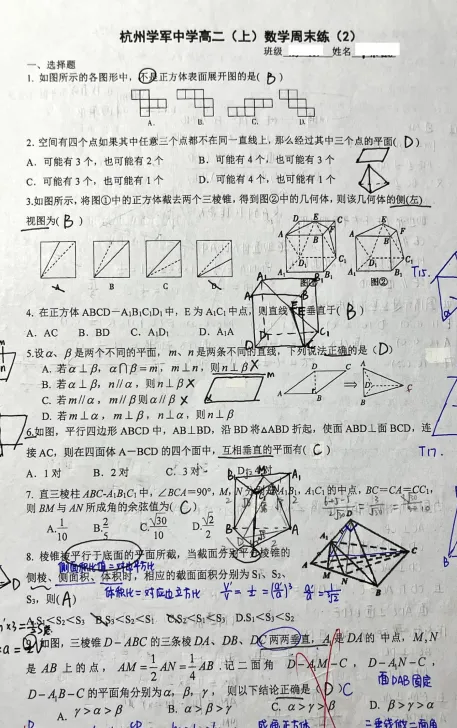 杭州学军中学高二（上）数学周末练（2）
班级 姓名
一、选择题
1. 如图所示的各图形中，不是正方体表面展开图的是( B )
A. B. C. D.
2. 空间有四个点如果其中任意三个点都不在同一直线上，那么经过其中三个点的平面( D )
A．可能有 3 个，也可能有 2 个 B．可能有 4 个，也可能有 3 个
C．可能有 3 个，也可能有 1 个 D．可能有 4 个，也可能有 1 个
3.如图所示，将图①中的正方体截去两个三棱锥，得到图②中的几何体，则该几何体的侧(左)
视图为( B )
A B C D
图① 图②
T15.
4. 在正方体 ABCD－A₁B₁C₁D₁ 中，E 为 A₁C₁ 中点，则直线 CE 垂直于( B )
A．AC B．BD C．A₁D₁ D．A₁A
5.设 α、β 是两个不同的平面，m、n 是两条不同的直线，下列说法正确的是( D )
A. 若 α⊥β，α∩β＝m，m⊥n，则 n⊥β ✗
B. 若 α⊥β，n//α，则 n⊥β ✗
C. 若 m//α，m//β 则 α//β ✗
D. 若 m⊥α，m⊥β，n⊥α，则 n⊥β
6.如图，平行四边形 ABCD 中，AB⊥BD，沿 BD 将△ABD 折起，使面 ABD⊥面 BCD，连
接 AC，则在四面体 A－BCD 的四个面中，互相垂直的平面有( C )
T17.
A．1 对 B．2 对 C．3 对
7. 直三棱柱 ABC-A₁B₁C₁ 中，∠BCA＝90°，M，N 分别是 A₁B₁，A₁C₁ 的中点，BC＝CA＝CC₁，
则 BM 与 AN 所成角的余弦值为( C )
A.1/10 B.2/5 C.√30/10 D.√2/2
8. 棱锥被平行于底面的平面所截，当截面分别平分棱锥的
侧面积比值=对应边平方比
侧棱、侧面积、体积时，相应的截面面积分别为 S₁、S₂、
S₃，则( A ) 体积比=对应边立方比
A.S₁<S₂<S₃ B.S₃<S₂<S₁ C.S₂<S₁<S₃ D.S₁<S₃<S₂
如图，三棱锥 D－ABC 的三条棱 DA、DB、DC 两两垂直，A₁ 是 DA 的 中点，M,N
是 AB 上的点，AM＝1/2 AN＝1/4 AB .记二面角 D－A₁M－C，D－A₁N－C，
D－A₁B－C 的平面角分别为 α，β，γ，则以下结论正确是( D ) C 面DAB固定
A. γ＞α＞β B. α＞β＞γ C. α＞γ＞β D. β＞γ＞α